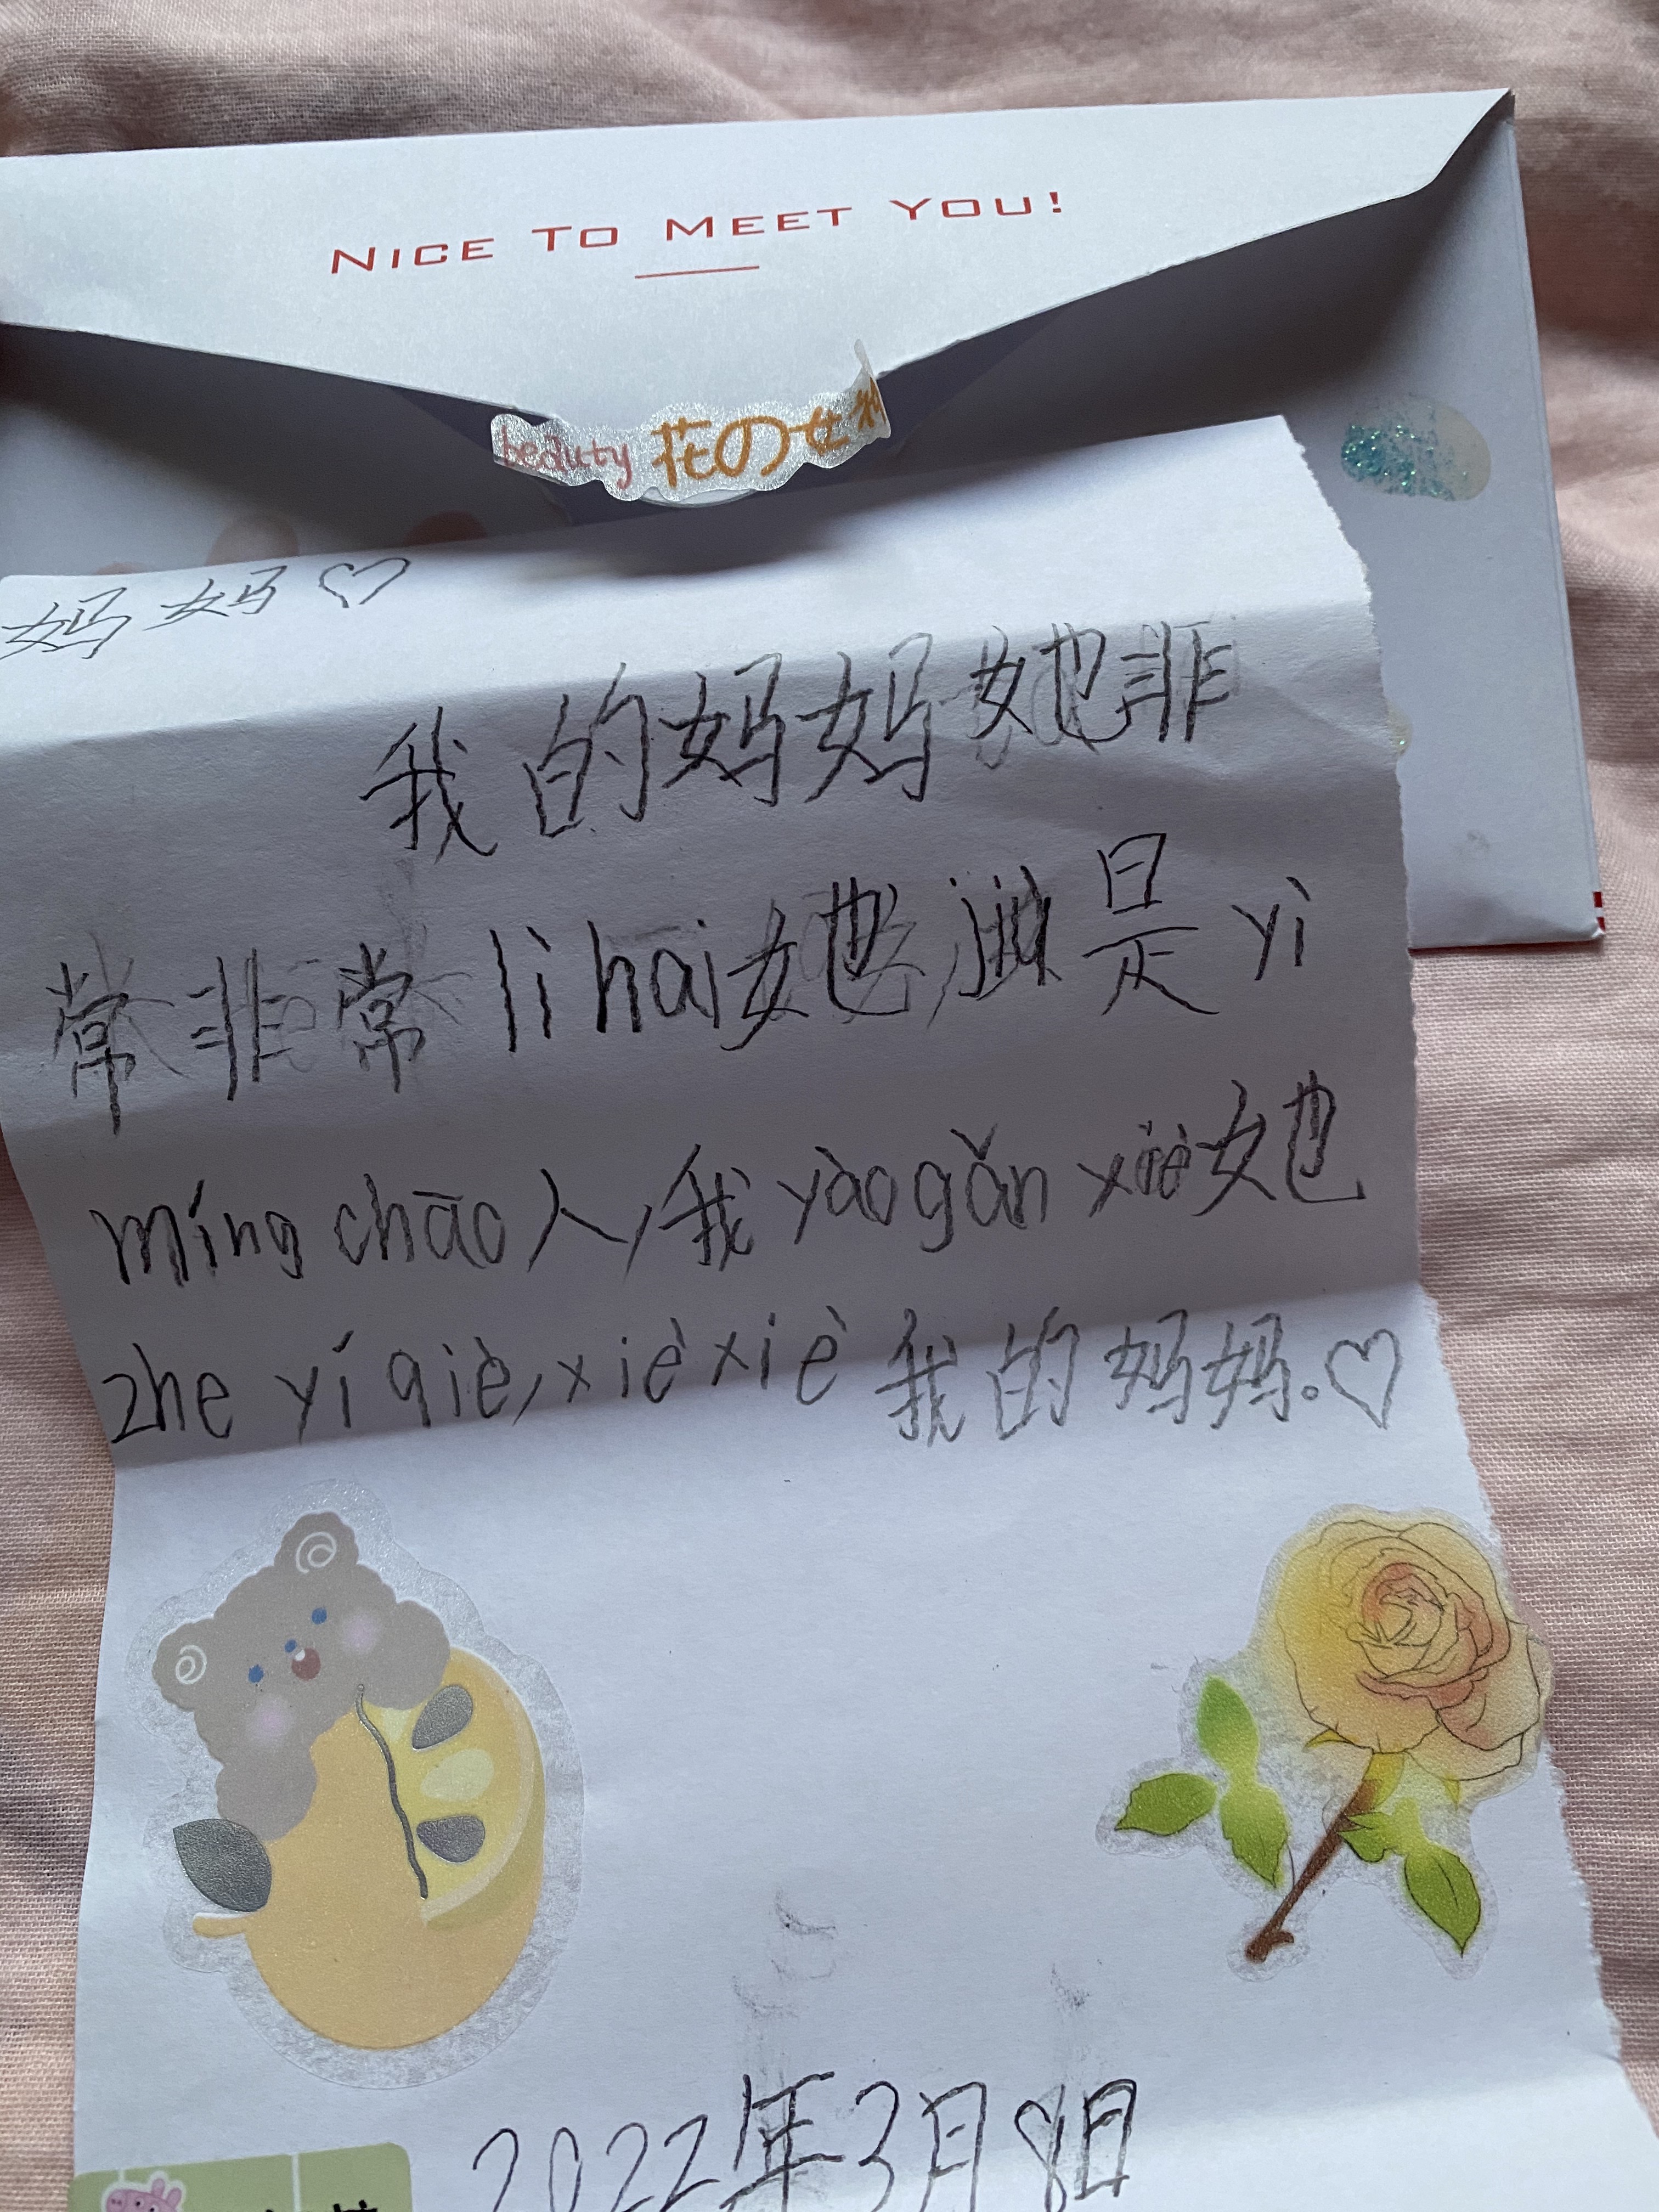 NICE TO MEET YOU!
beauty 花の女神
妈妈♡
我的妈妈她非
常非常lihai她,就是yì
míng chāo人,我yào gǎn xiè她
zhe yí qiè,xiè xiè我的妈妈。♡
2022年3月8日